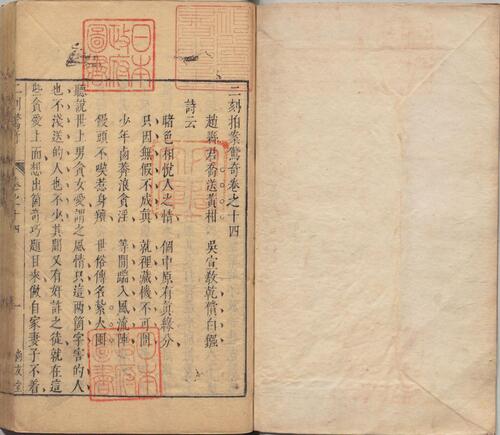 二刻拍案驚奇卷之十四
趙縣君喬送黃柑 吳宣敎乾償白鏹
詩云
睹色相悅人之情 個中原有眞緣分
只因無假不成眞 就裡藏機不可問
少年鹵莽浪貪淫 等閒踹入風流陣
饅頭不喫惹身羶 世俗傳名紮火囤
聽說世上男貪女愛謂之風情只這兩箇字害的人
也不淺送的人也不少其間又有奸詐之徒就在這
些貪愛上面想出箇奇巧題目來做自家妻子不着
二刻驚奇 卷之十四 一 尙友堂
日本政府圖書